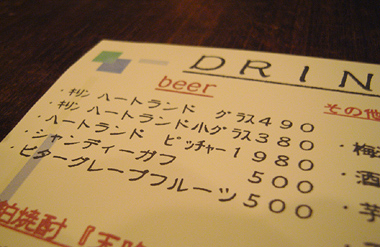 DRIN
beer
・キリン ハートランド グラス 490
・キリン ハートランド小グラス 380
・ハートランド ピッチャー 1980
・シャンディーガフ 500
・ビターグレープフルーツ 500
その他
・梅
・酒
・芋
焼酎『